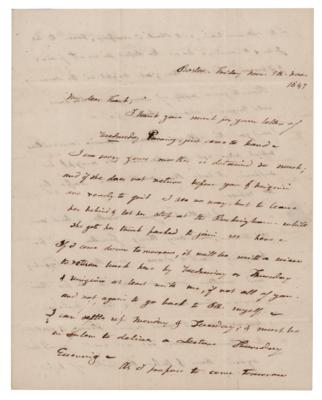 Boston, Friday Nov. 5th
1847
My dear Frank,
I thank you much for your letter of
Wednesday Evening, just come to hand.
I am sorry your mother is detained so much;
and if she does not return before you &
are ready to quit I see no way, but to leave
her behind & let her stop at the while
she get her trunk packed to join us here.
If I come down tomorrow, it will be with a view
to return back here by Wednesday or Thursday
& at least with me, if not all of you,
and not again to go back to myself.
I can settle up Monday & Tuesday; & must be
in Salem to deliver a Lecture Thursday
Evening.
As I propose to come tomorrow